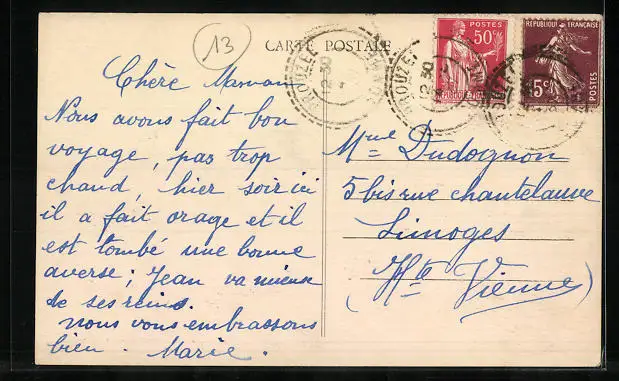 13
CARTE POSTALE
POSTES
50c
RÉPUBLIQUE FRANÇAISE
15c
POSTES
Chère Maman
Nous avons fait bon
voyage, pas trop
chaud, hier soir ici
il a fait orage et il
est tombé une bonne
averse; Jean va mieux
de ses reins.
Nous vous embrassons
bien. Marie.
Mme Dudognon
5 bis rue chantelauve
Limoges
(Hte Vienne)